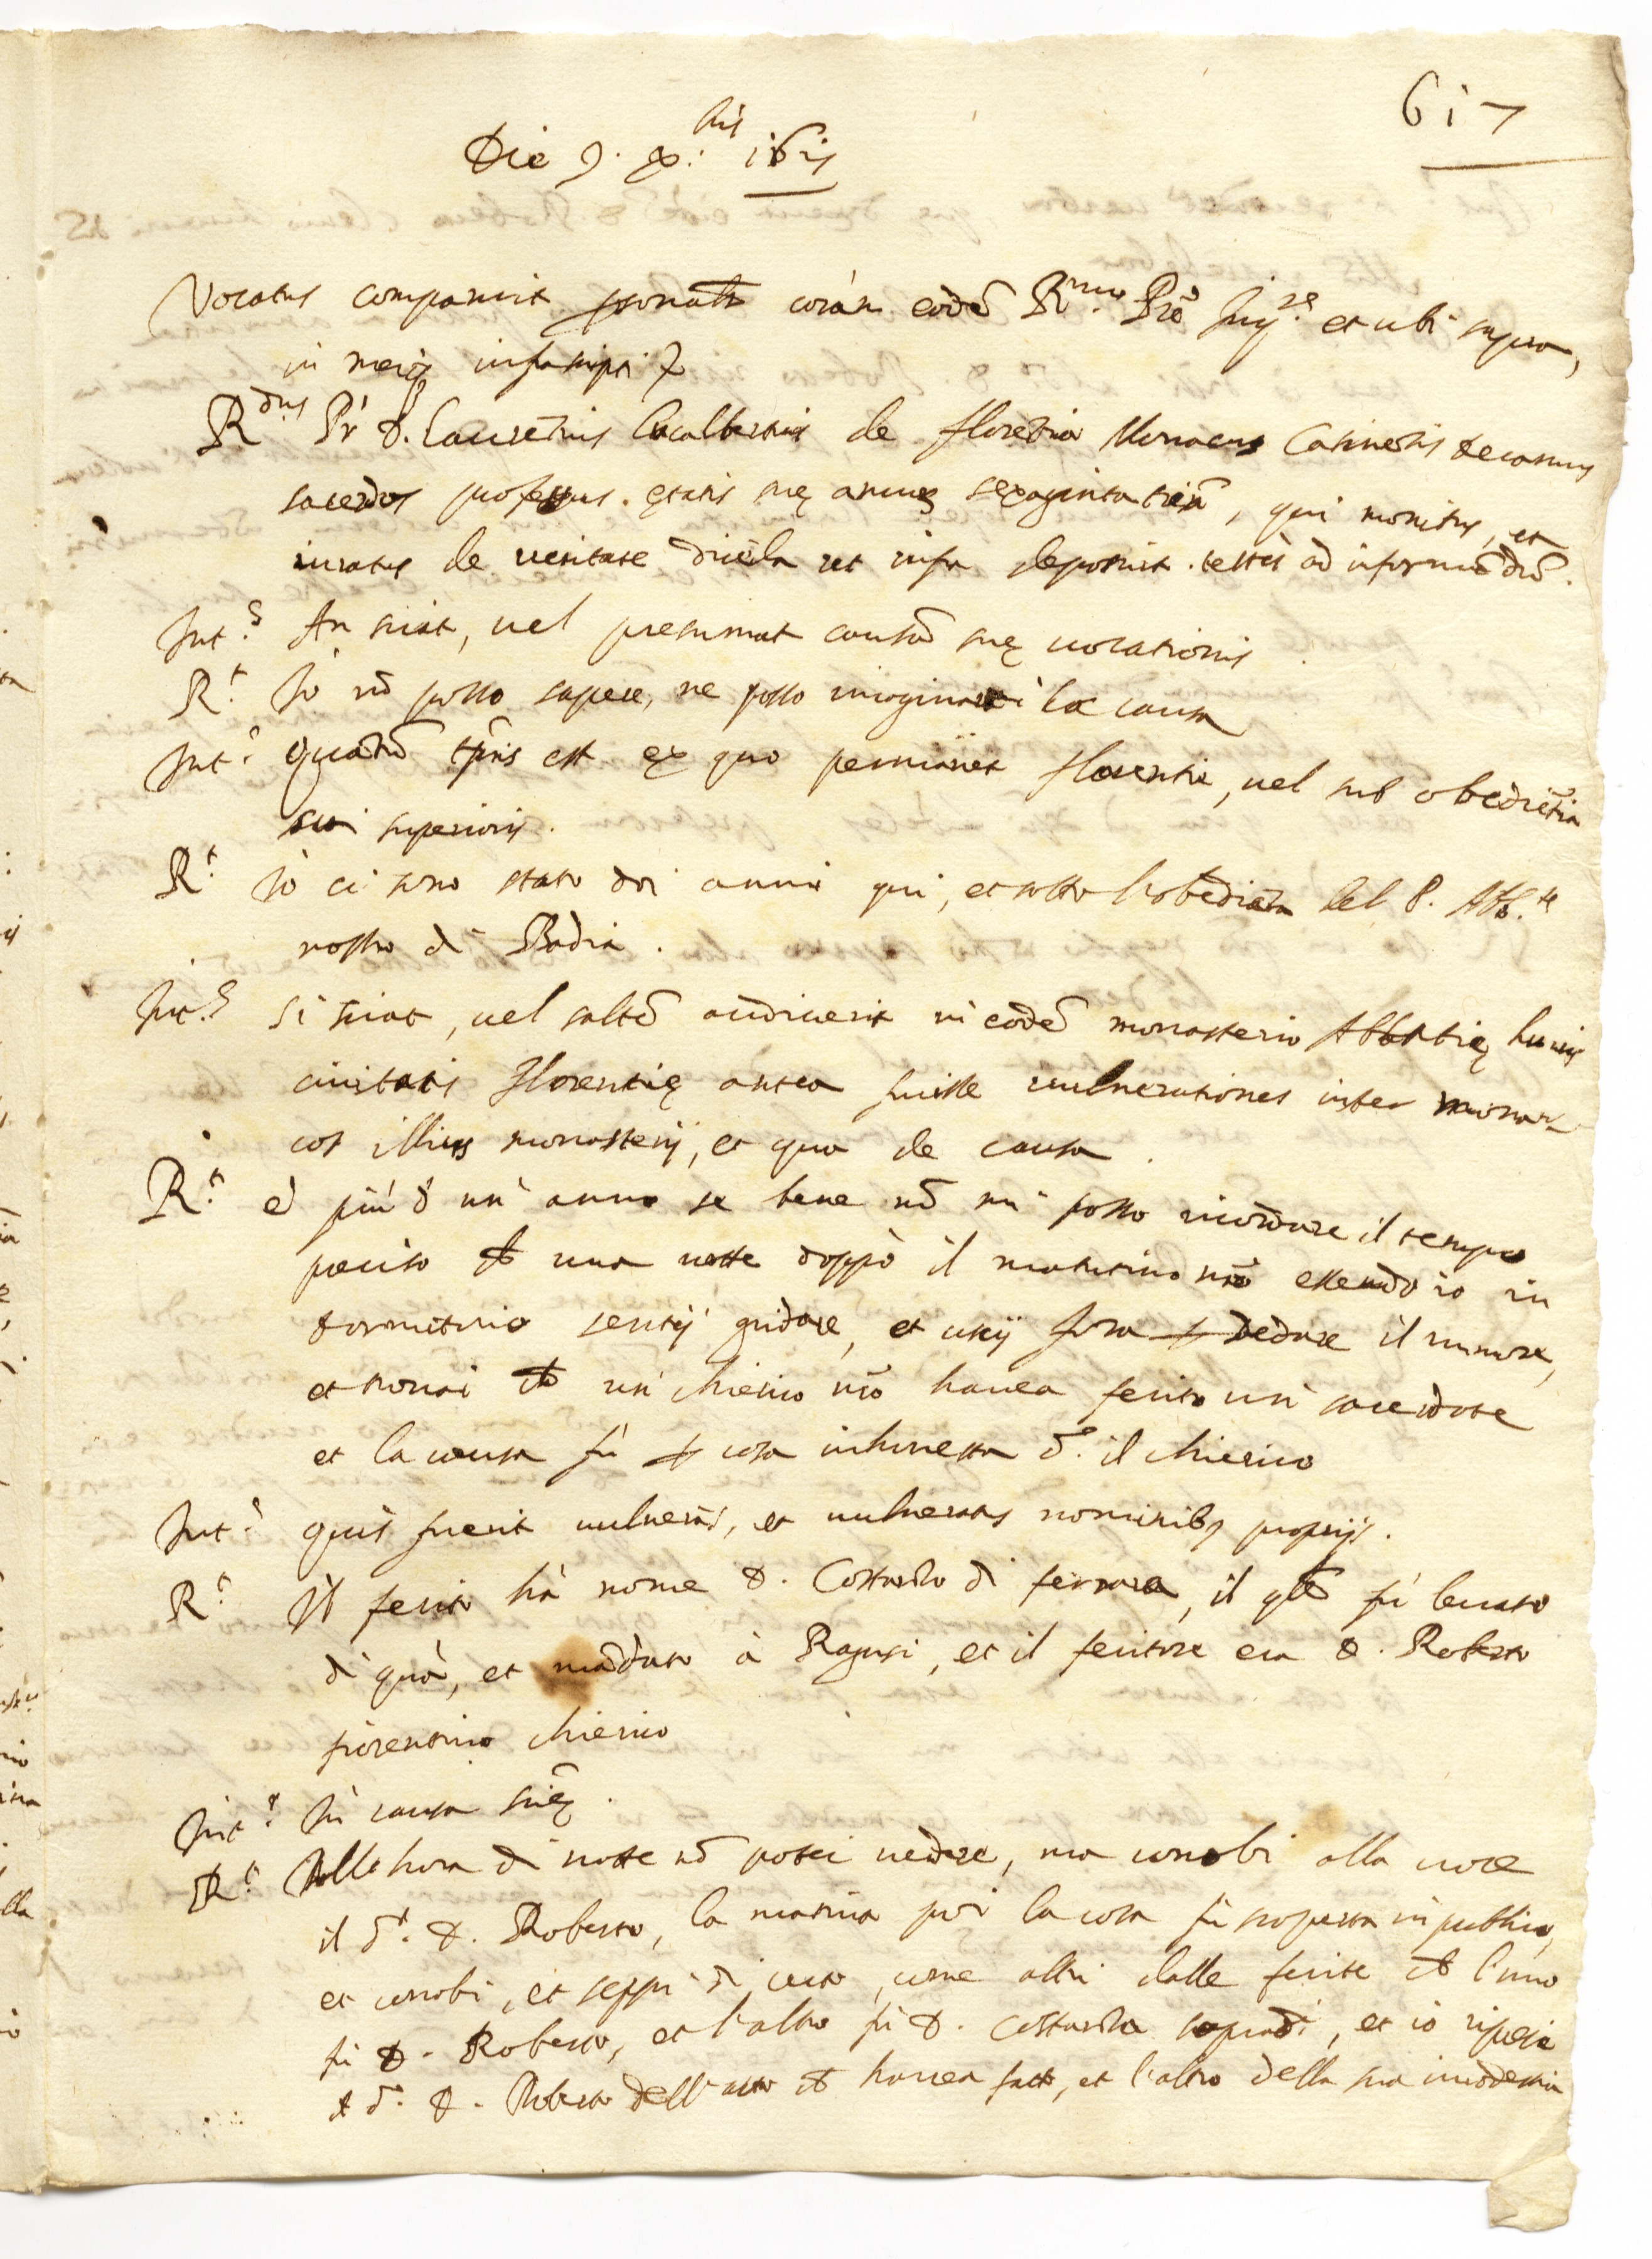 617
Die 9. x.bris 1615
Vocatus comparuit personalr corãm eodẽ R.mo Prẽ Inq.re et ubi supra,
in meiq. infrascripti
R.dus Pr̃ D. Laurẽtius de florẽtia Monacus Casinẽsis decanus
sacerdos professus. ętatis suę annorũ sexaginta triũ, qui monitus, et
iuratus de veritate dicẽda ut infra deposuit. testis ad informãdũ.
Int.s An sciat, vel presumat causã suę vocationis.
R.t Io nõ posso sapere, ne posso imaginarmi la causa
Int.s Quãtũ tp̃ris est ex quo permãnet florentie, vel sub obediẽtia
sui superioris.
R.t Io ci sono stato doi anni qui, et sotto l'obediẽza del P. Abb.te
nostro di Badia.
Int.s Si sciat, vel saltẽ audiverit in eodẽ monasterio Abbatię huius
civitatis florentię antea fuisse vulnerationes inter mona-
cos illius monasterij, et qua de causa.
R.t è più d'un' anno se bene nõ mi posso ricordare il tempo
preciso ch̃ una notte doppò il matutino nrõ essendo io in
dormitorio sentij gridare, et uscij fora p vedere il rumore,
et trovai ch̃ un' chierico nrõ havea ferito un' sacerdote
et la causa fù p cosa inhonesta d.o il chierico
Int.s quis fuerit vulnerãs, et vulneratus nominibus proprijs.
R.t Il ferito hà nome D. Costanzo di ferrara, il qle fù levato
di quà, et mãdato à Ragusi, et il feritore era D. Roberto
fiorentino chierico
Int.s In causa sciẽ.
R.t All'hora di notte nõ potei vedere, ma conobi alla voce
il d.o D. Roberto, la matina poi la cosa fù scoperta in publico,
et conobi, et seppi di certo, come altri dalle ferite ch̃ l'uno
fù D. Roberto, et l'altro fù D. Costanzo sopradi, et io ripresi
d.o D. Roberto dell'atto ch̃ havea fatto, et l'altro della sua imodestia